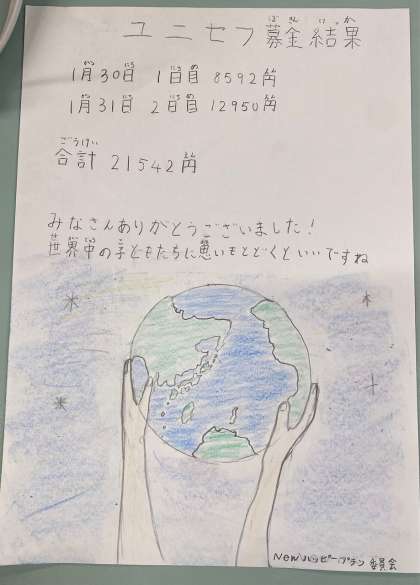 ユニセフ募金結果
1月30日 1日目 8592円
1月31日 2日目 12950円
合計 21542円
みなさんありがとうございました！
世界中の子どもたちに思いもとどくといいですね
Newハッピープラン委員会